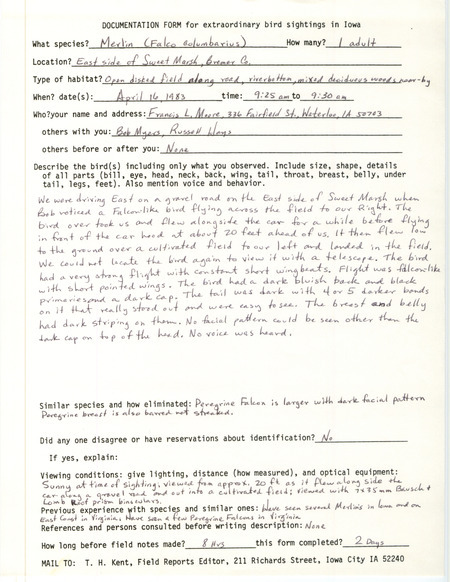 DOCUMENTATION FORM for extraordinary bird sightings in Iowa
What species? Merlin (Falco columbarius) How many? 1 adult
Location? East side of Sweet Marsh, Bremer Co.
Type of habitat? Open disked field along road, riverbottom, mixed deciduous woods near-by
When? date(s): April 16, 1983 time: 9:25 am to 9:30 am
Who?your name and address: Francis L. Moore, 336 Fairfield St., Waterloo, IA 50703
others with you: Bob Myers, Russell Hays
others before or after you: None
Describe the bird(s) including only what you observed. Include size, shape, details
of all parts (bill, eye, head, neck, back, wing, tail, throat, breast, belly, under
tail, legs, feet). Also mention voice and behavior.
We were driving East on a gravel road on the East side of Sweet Marsh when
Bob noticed a Falcon-like bird flying across the field to our Right. The
bird over took us and flew alongside the car for a while before flying
in front of the car head at about 20 feet ahead of us. It then flew low
to the ground over a cultivated field to our left and landed in the field.
We could not locate the bird again to view it with a telescope. The bird
had a very strong flight with constant short wingbeats. Flight was falconlike
with short pointed wings. The bird had a dark bluish back and black
primeries and a dark cap. The tail was dark with 4 or 5 darker bands
on it that really stood out and were easy to see. The breast and belly
had dark striping on them. No facial pattern could be seen other than the
dark cap on top of the head. No voice was heard.
Similar species and how eliminated: Peregrine Falcon is larger with dark facial pattern
Peregrine breast is also barred not streaked.
Did any one disagree or have reservations about identification? No
If yes, explain:
Viewing conditions: give lighting, distance (how measured), and optical equipment:
Sunny at time of sighting, viewed from approx. 20 ft as it flew along side the
car along a gravel road and out into a cultivated field; viewed with 7x35mm Bausch &
Lomb Roof prism binoculars.
Previous experience with species and similar ones: Have seen several Merlins in Iowa and on
East Coast in Virginia. Have seen a few Peregrine Falcons in Virginia.
References and persons consulted before writing description: None
How long before field notes made? 8 Hrs this form completed? 2 Days
MAIL TO: T. H. Kent, Field Reports Editor, 211 Richards Street, Iowa City IA 52240